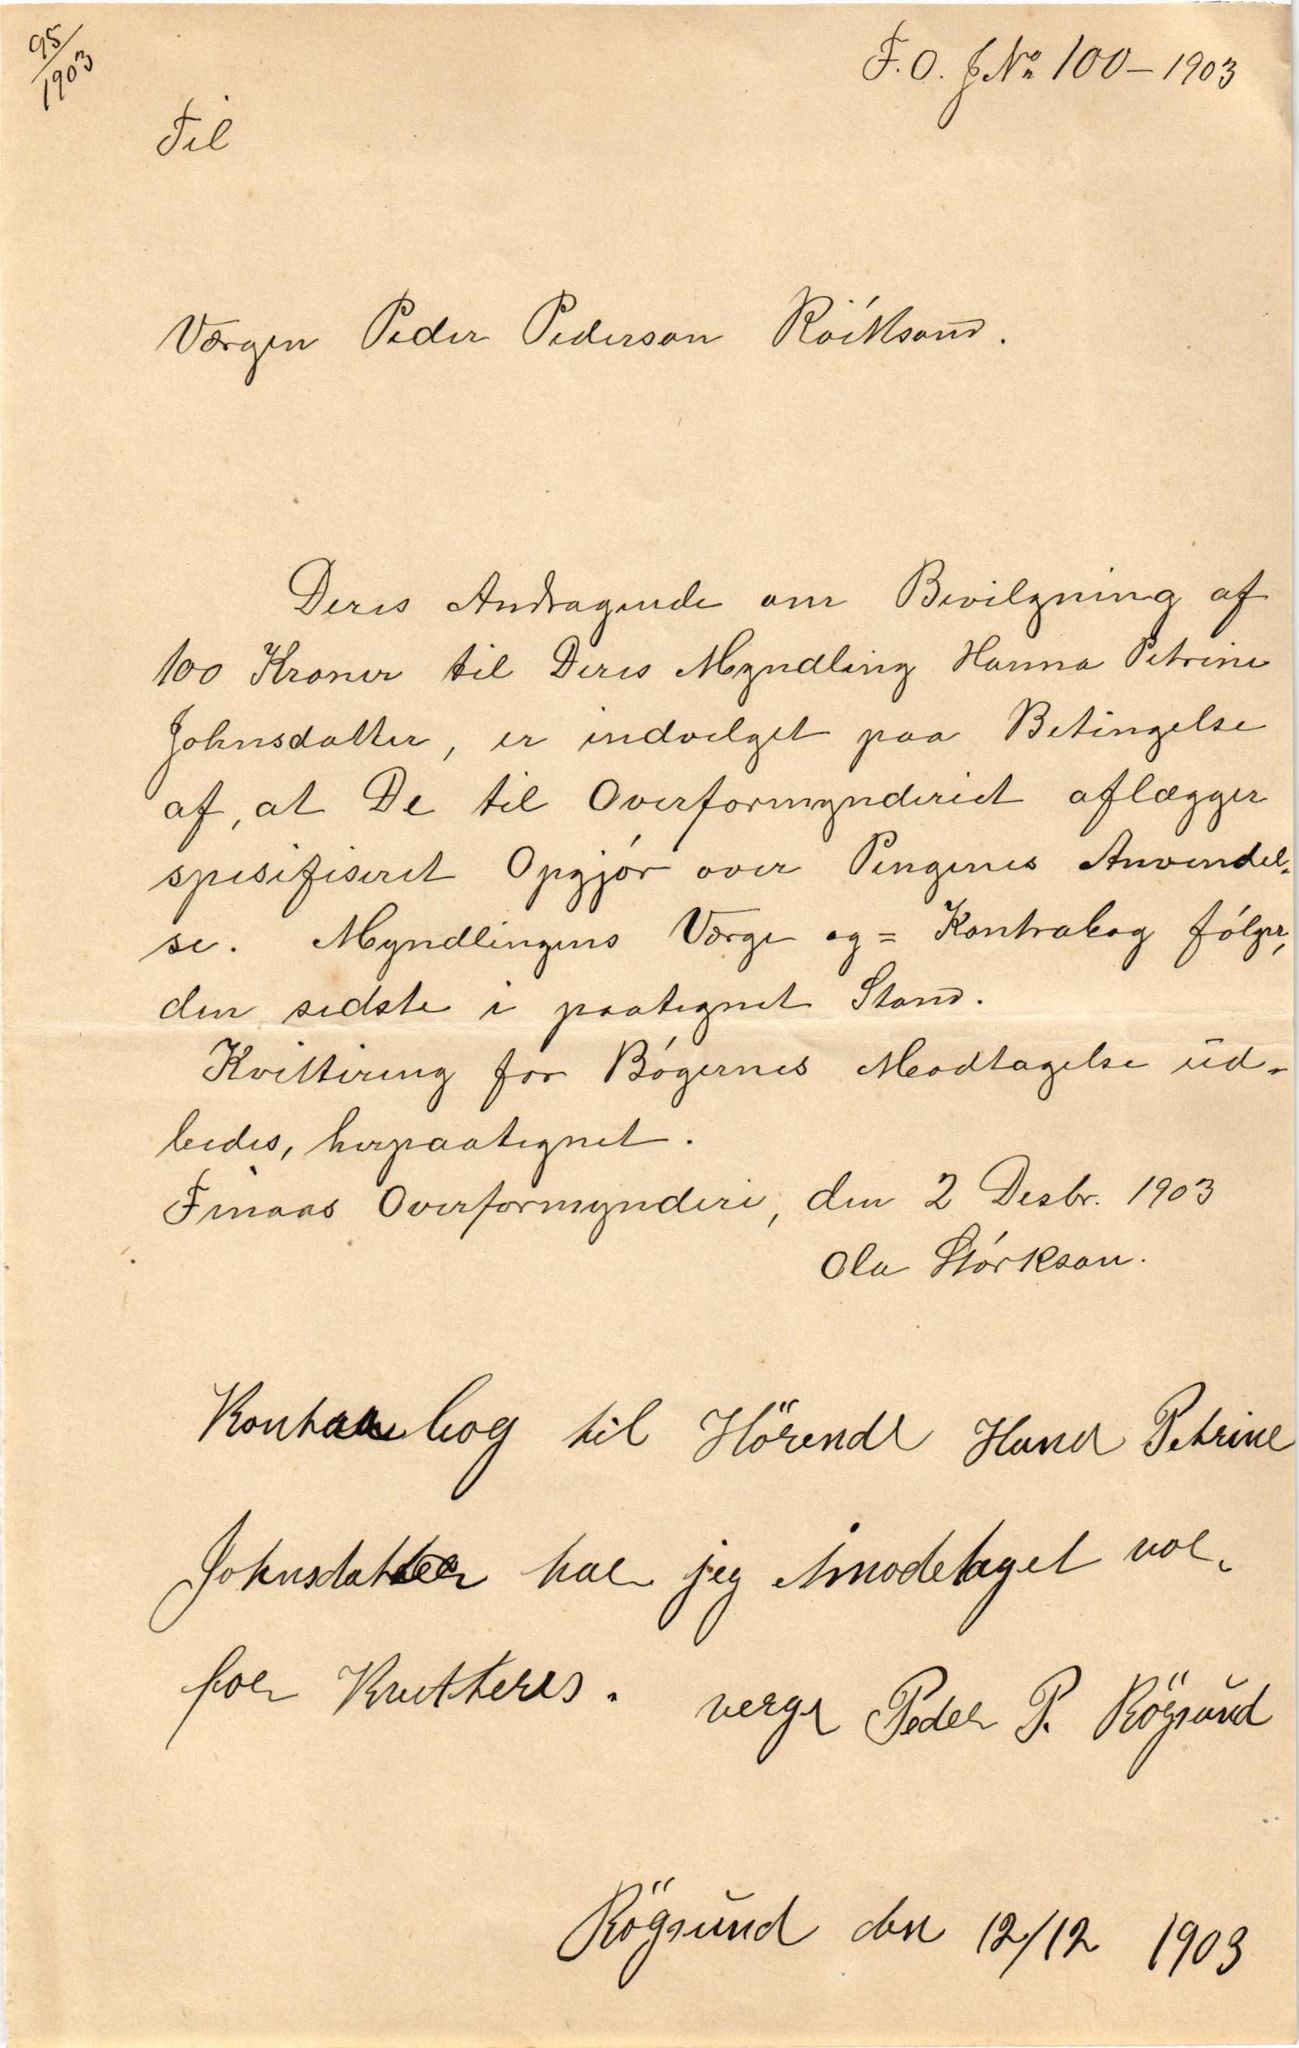 95/1903
F. O. J No 100 – 1903
Til
Værgen Peder Pederson Röiksand.
Deres Andragende om Bevilgning af
100 Kroner til Deres Myndling Hanna Petrine
Johnsdatter, er indvelget paa Betingelse
af, at De til Overformynderiet aflægger
spesifiseret Opgjør over Pengenes Anvendel-
se. Myndlingens Værge og = Kontrabog følger,
den sidste i paategnet Stand.
Kvittering for Bøgernes Modtagelse ud-
bedes, herpaategnet.
Finaas Overformynderi, den 2 Desbr. 1903
Ola Størkson.
bog til Hörende Hana Petrine
Johnsdatter har jeg modetaget vor-
for Kvitteres. verge Peder P. Rögsund
Rögsund den 12/12 1903